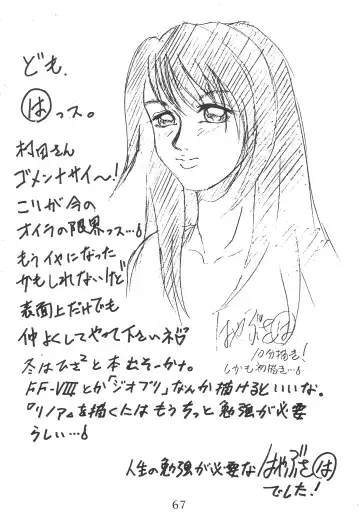 ども.
はっス。
村田さん
ゴメンナサイ〜!
こリが今の
オイラの限界っス…
もうイヤになった
かもしれないけど
表面上だけでも
仲よくしてやって下さいネ
冬はひさびさと本出そーかな。
FF-VIIIとか「ジオブリ」なんか描けるといいな。
『リノア』を描くにはもうちっと勉強が必要
らしい…
はやぶさは
10分描き!
しかも初描き…
人生の勉強が必要なはやぶさは
でした!
67